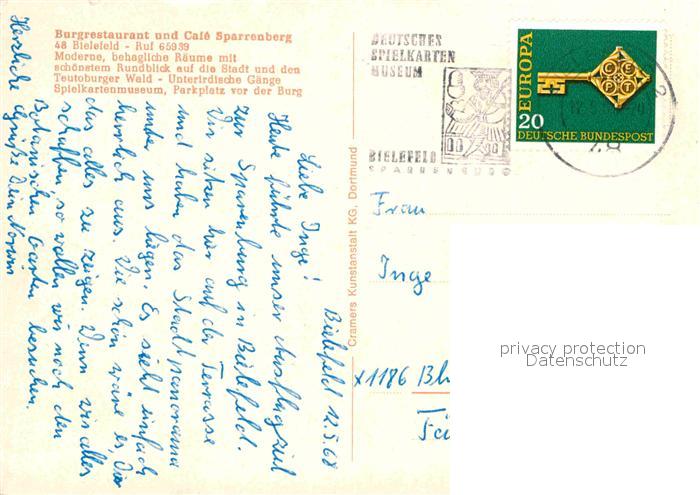 Burgrestaurant und Café Sparrenberg
48 Bielefeld - Ruf 65939
Moderne, behagliche Räume mit
schönstem Rundblick auf die Stadt und den
Teutoburger Wald - Unterirdische Gänge
Spielkartenmuseum, Parkplatz vor der Burg
Bielefeld 12.5.68
Liebe Inge!
Heute führte unser Ausflugsziel
zur Sparrenburg in Bielefeld.
Wir sitzen hier auf der Terrasse
und haben das Stadtpanorama
unter uns liegen. Es sieht einfach
herrlich aus. Wie schön wäre es, Dir
das alles zu zeigen. Wenn wir alles
schaffen, so wollen wir noch den
Botanischen Garten besuchen.
Herzliche Grüße Dein
Cramers Kunstanstalt KG, Dortmund
DEUTSCHES
SPIELKARTEN
MUSEUM
BIELEFELD
SPARRENBURG
EUROPA
CEPT
20
DEUTSCHE BUNDESPOST
Frau
Inge
X1186
privacy protection
Datenschutz